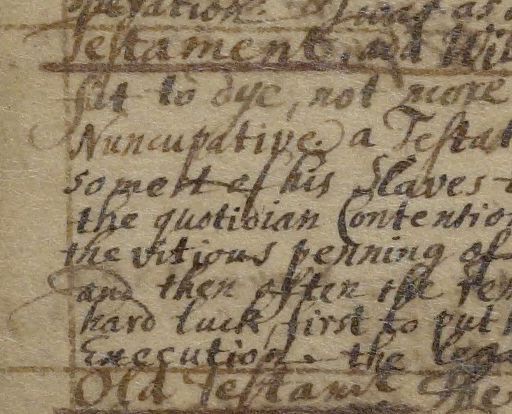 operation. & Just as a
Testament, and Wil
fit to dye, not more
Nuncupative. a Testat
some of his Slaves
the quotidian Contention
the vitious penning of
and then often the rem
hard luck, first to put
Execution the Lega
Old Testamt. The